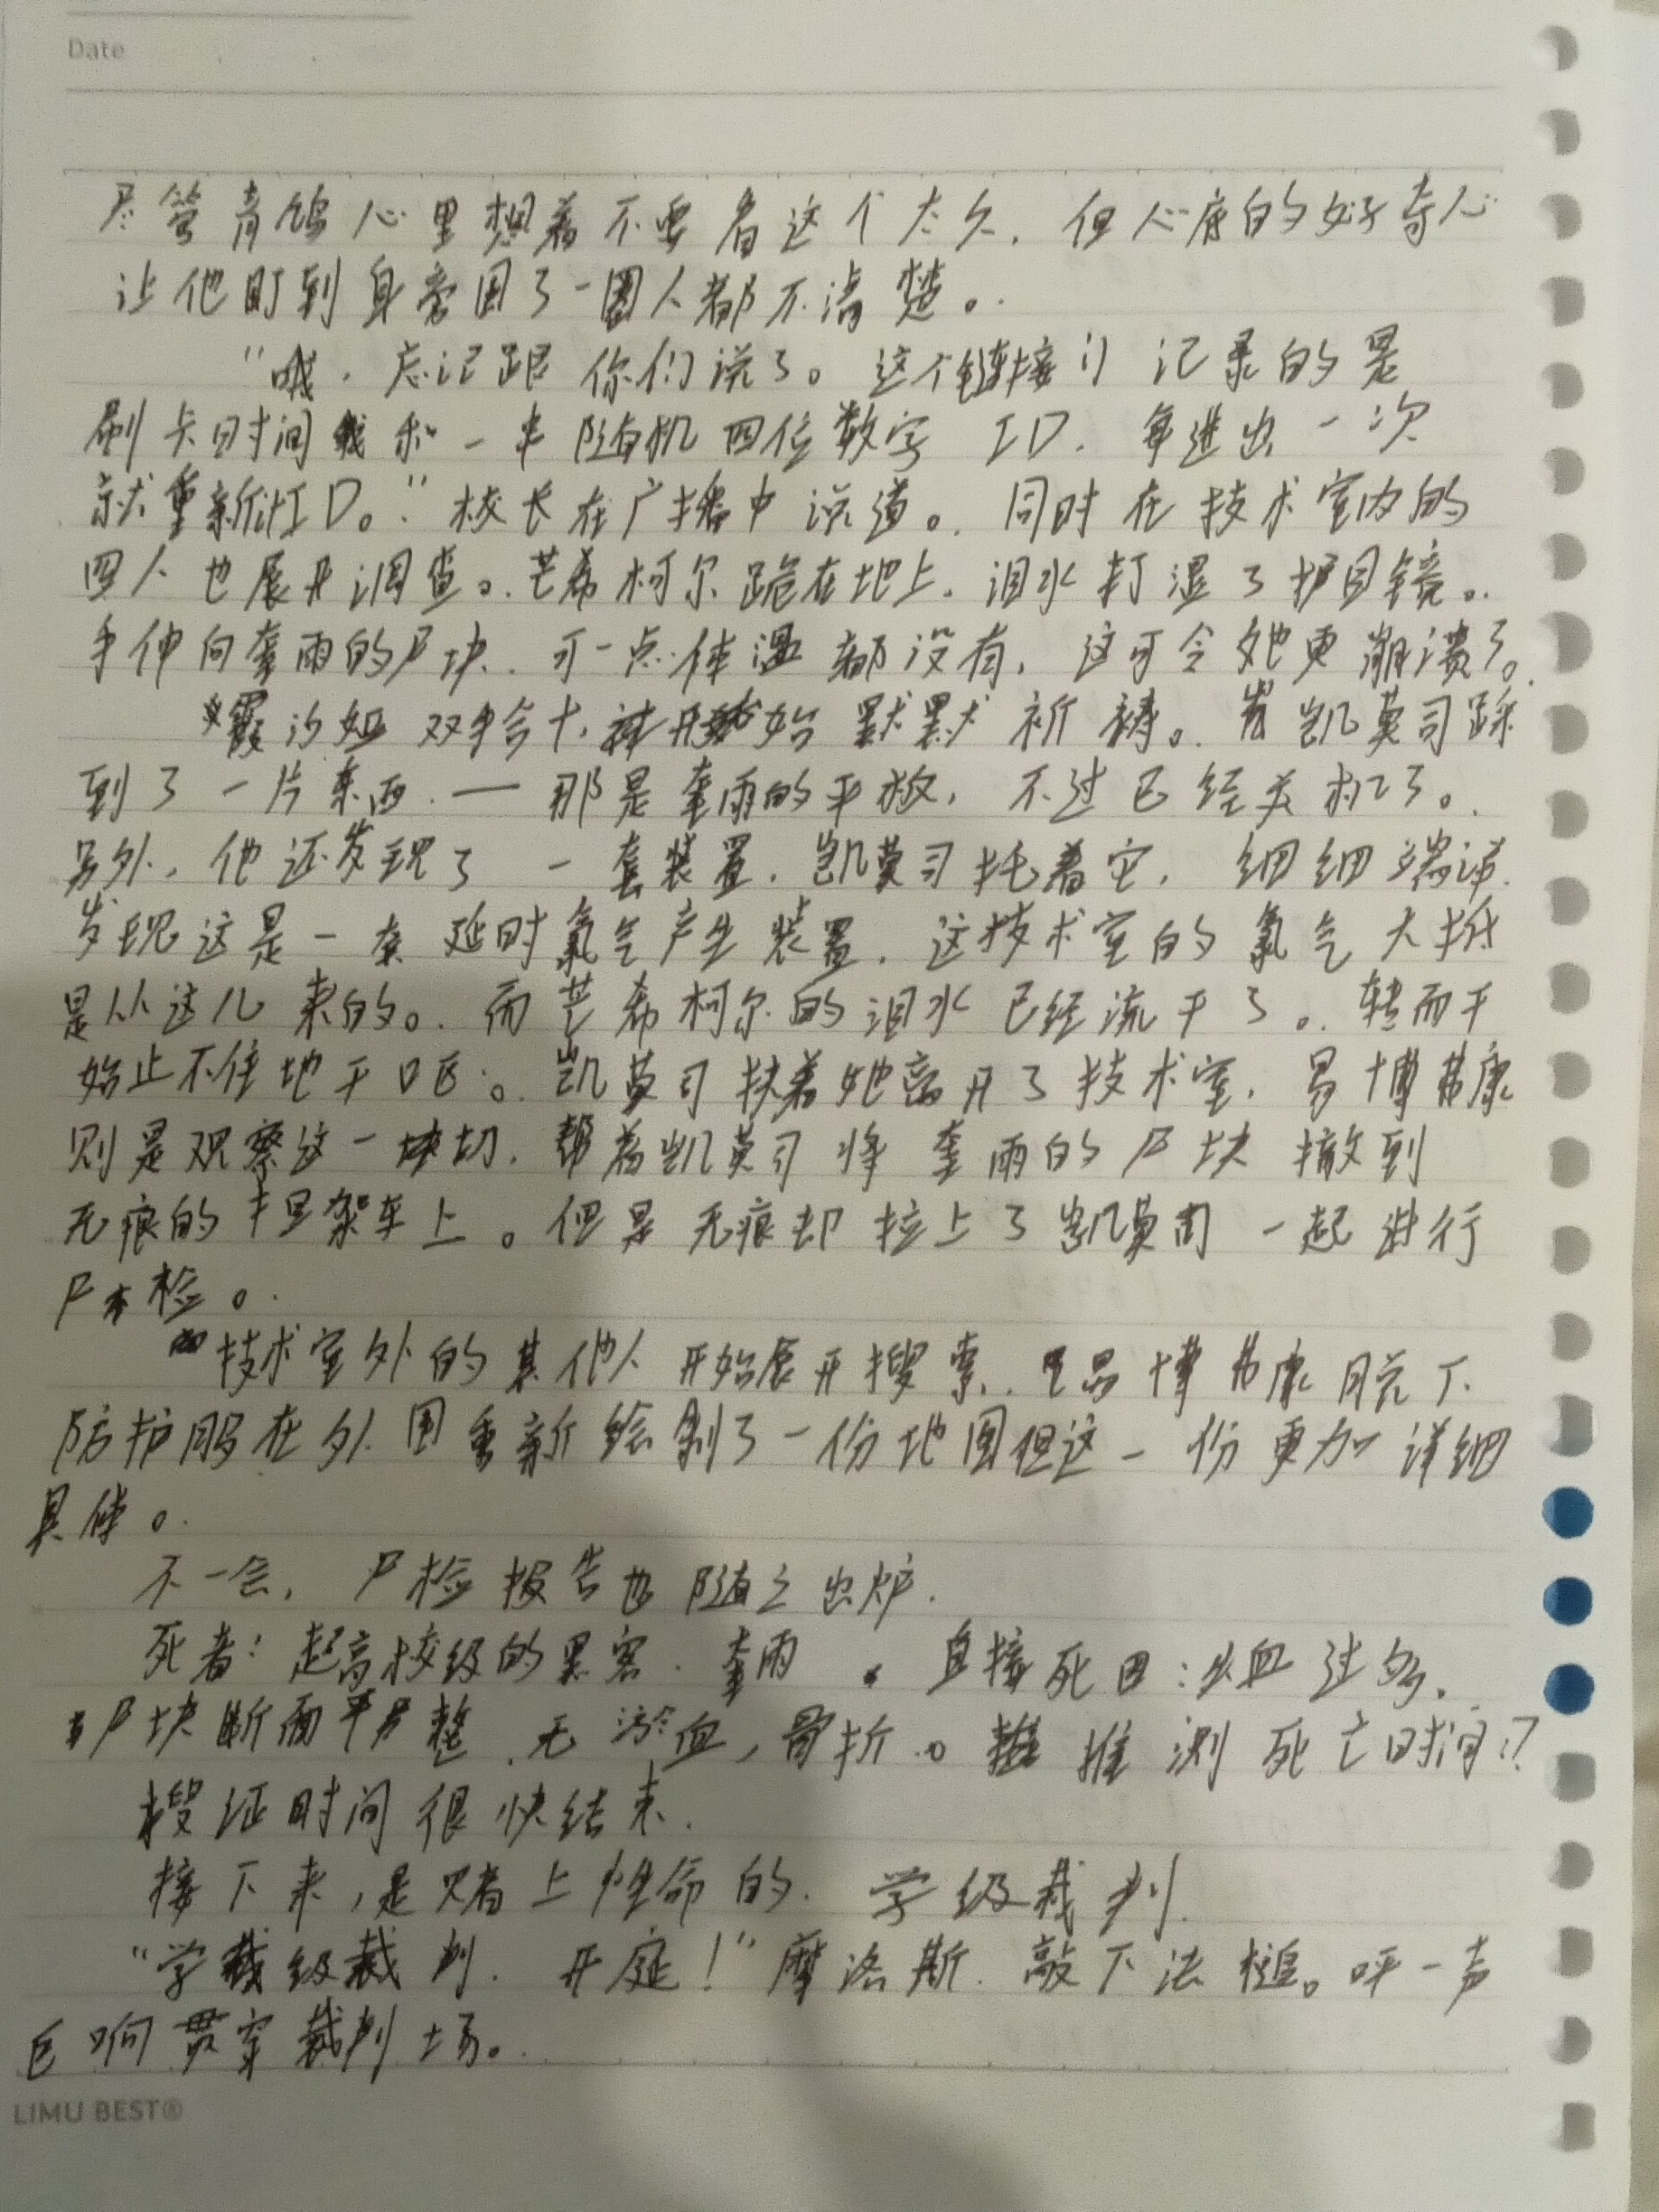 Date
尽管青鸽心里想着不要看这个太久，但心底的好奇心
让他盯到身旁围了一圈人都不清楚。
“哦，忘记跟你们说了。这个链接门记录的是
刷卡时间和一串随机四位数字ID，每进出一次
就重新计ID。”校长在广播中说道。同时在技术室内的
四人也展开调查。芒希柯尔跪在地上，泪水打湿了护目镜。
手伸向奎雨的尸块，可一点体温都没有，这可令她更崩溃了。
霞汐姬双手合十，开始默默祈祷。凯莫司踩
到了一片东西——那是奎雨的平板，不过已经关机了。
另外，他还发现了一套装置，凯莫司托着它，细细端详，
发现这是一套延时氯气产生装置，这技术室的氯气大抵
是从这儿来的。而芒希柯尔的泪水已经流干了。转而干
始止不住地干呕。凯莫司扶着她离开了技术室，易博弗康
则是观察这一切，帮着凯莫司将奎雨的尸块搬到
无痕的担架车上。但是无痕却拉上了凯莫司一起进行
尸检。
技术室外的其他人开始展开搜索，易博弗康脱下
防护服在外围重新绘制了一份地图但这一份更加详细
具体。
不一会，尸检报告也随之出炉.
死者：超高校级的黑客 奎雨。直接死因：失血过多。
尸块断面平整，无淤血，骨折。推测死亡时间？
搜证时间很快结束.
接下来，是赌上性命的 学级裁判
“学级裁判，开庭！”摩洛斯敲下法槌。呯一声
巨响贯穿裁判场。
LIMU BEST®